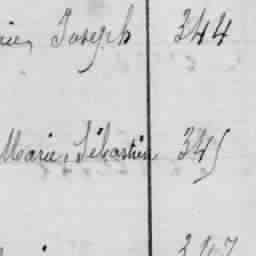 Joseph 344
Marie, Sébastien 345
347